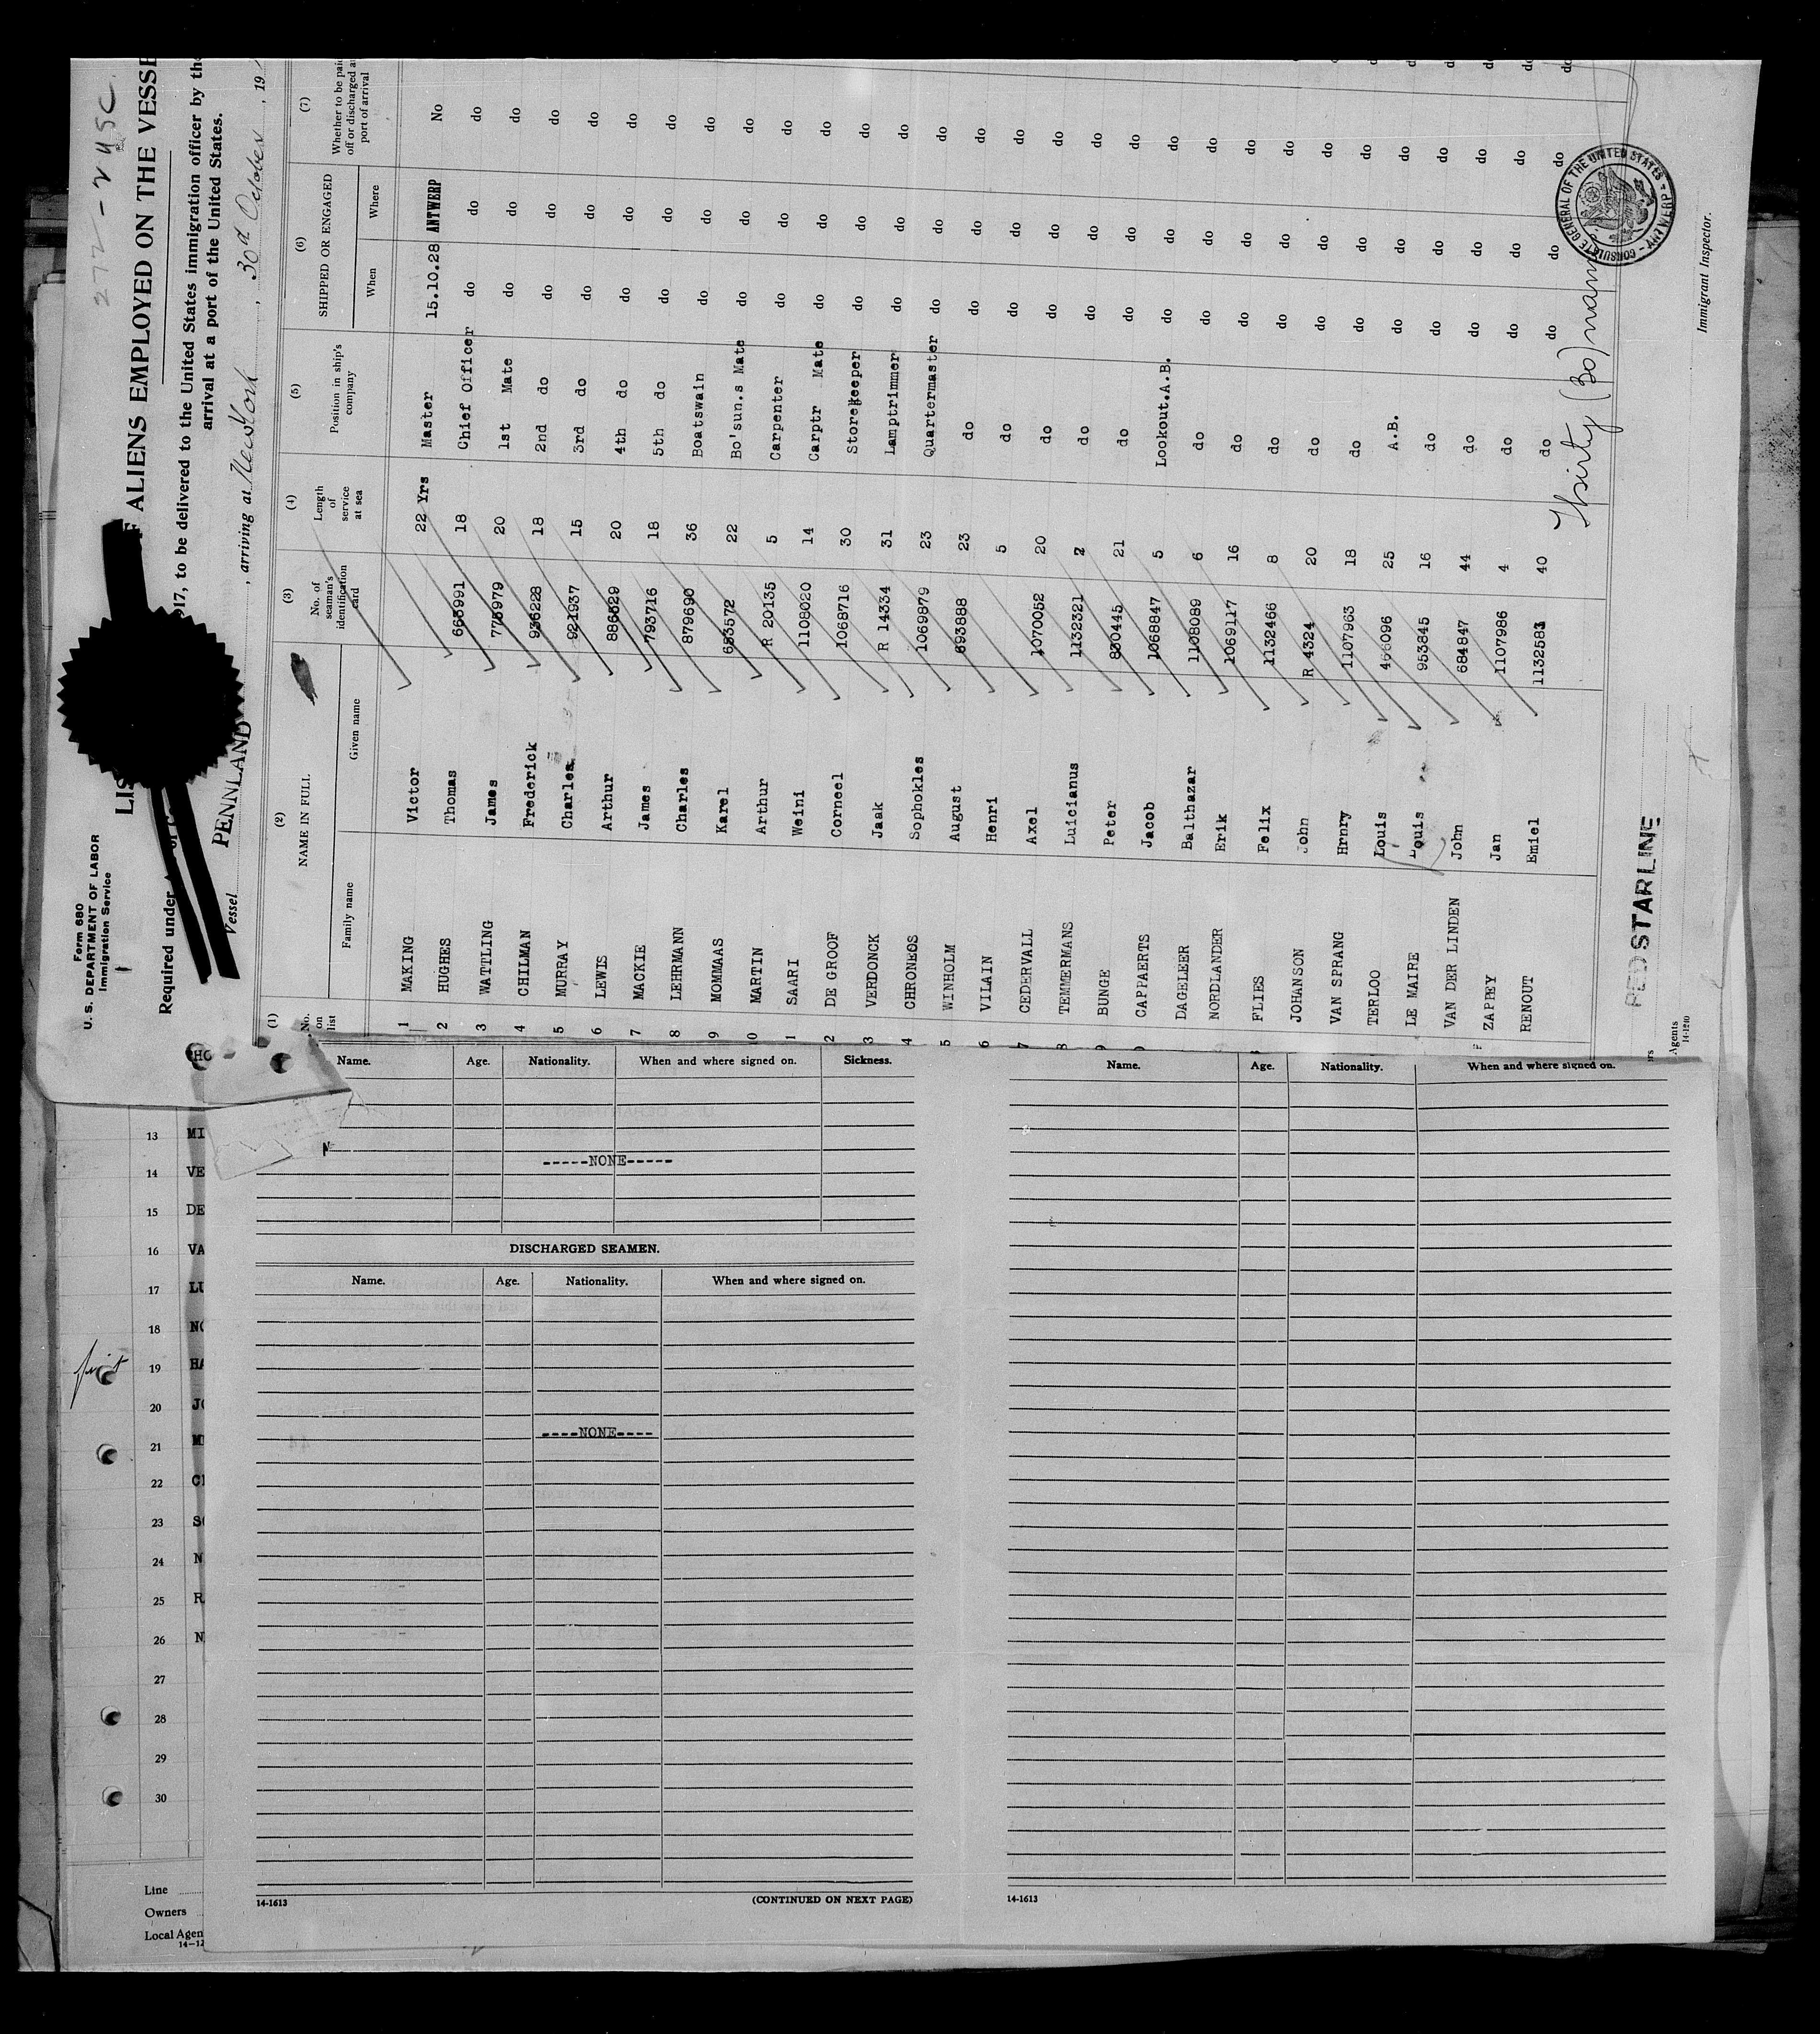 272-2 USC
Form 680
U. S. DEPARTMENT OF LABOR
Immigration Service
ALIENS EMPLOYED ON THE VESSE
Required under
917, to be delivered to the United States immigration officer by the
arrival at a port of the United States.
Vessel PENNLAND , arriving at New York , 30th October , 19
(1) (2) (3) (4) (5) (6) (7)
No. on list
NAME IN FULL
Family name Given name
No. of seaman's identification card
Length of service at sea
Position in ship's company
SHIPPED OR ENGAGED
When Where
Whether to be paid off or discharged at port of arrival
1 MAKING Victor 22 Yrs Master 15.10.28 ANTWERP No
2 HUGHES Thomas 663991 18 Chief Officer do do do
3 WATTLING James 775979 20 1st Mate do do do
4 CHILMAN Frederick 936228 18 2nd do do do do
5 MURRAY Charles 921937 15 3rd do do do do
6 LEWIS Arthur 886629 20 4th do do do do
7 MACKIE James 793716 18 5th do do do do
8 LEHRMANN Charles 879690 36 Boatswain do do do
9 MOMMAAS Karel 683572 22 Bo'sun.s Mate do do do
0 MARTIN Arthur R 20135 5 Carpenter do do do
1 SAARI Weini 1108020 14 Carptr Mate do do do
2 DE GROOF Corneel 1068716 30 Storekeeper do do do
3 VERDONCK Jaak R 14334 31 Lamptrimmer do do do
4 CHRONEOS Sophokles 1069879 23 Quartermaster do do do
5 WINHOLM August 693888 23 do do do do
6 VILAIN Henri 5 do do do do
7 CEDERVALL Axel 1070052 20 do do do do
8 TEMMERMANS Luicianus 1132321 2 do do do do
9 BUNGE Peter 830445 21 do do do do
CAPPAERTS Jacob 1068847 5 Lookout.A.B. do do do
DAGELEER Balthazar 1108089 6 do do do do
NORDLANDER Erik 1069117 16 do do do do
FLIES Felix 1132466 8 do do do do
JOHANSON John R 4324 20 do do do do
VAN SPRANG Hrnry 1107963 18 do do do do
TERLOO Louis 466096 25 A.B. do do do
LE MAIRE Louis 953845 16 do do do do
VAN DER LINDEN John 684847 44 do do do do
ZAPPEY Jan 1107986 4 do do do do
RENOUT Emiel 1132583 40 do do do do
Thirty (30) nam
CONSULATE GENERAL OF THE UNITED STATES - ANTWERP
RED STAR LINE
Agents
14-1240
Immigrant Inspector.
HO
Name. Age. Nationality. When and where signed on. Sickness.
-----NONE-----
DISCHARGED SEAMEN.
Name. Age. Nationality. When and where signed on.
----NONE----
14-1613 (CONTINUED ON NEXT PAGE)
Name. Age. Nationality. When and where signed on.
14-1613
13 MI
14 VE
15 DE
16 VA
17 LU
18 NO
19 HA
20 JO
21 M
22 C
23 SO
24 N
25 R
26 N
27
28
29
30
Line
Owners
Local Agen
14-12